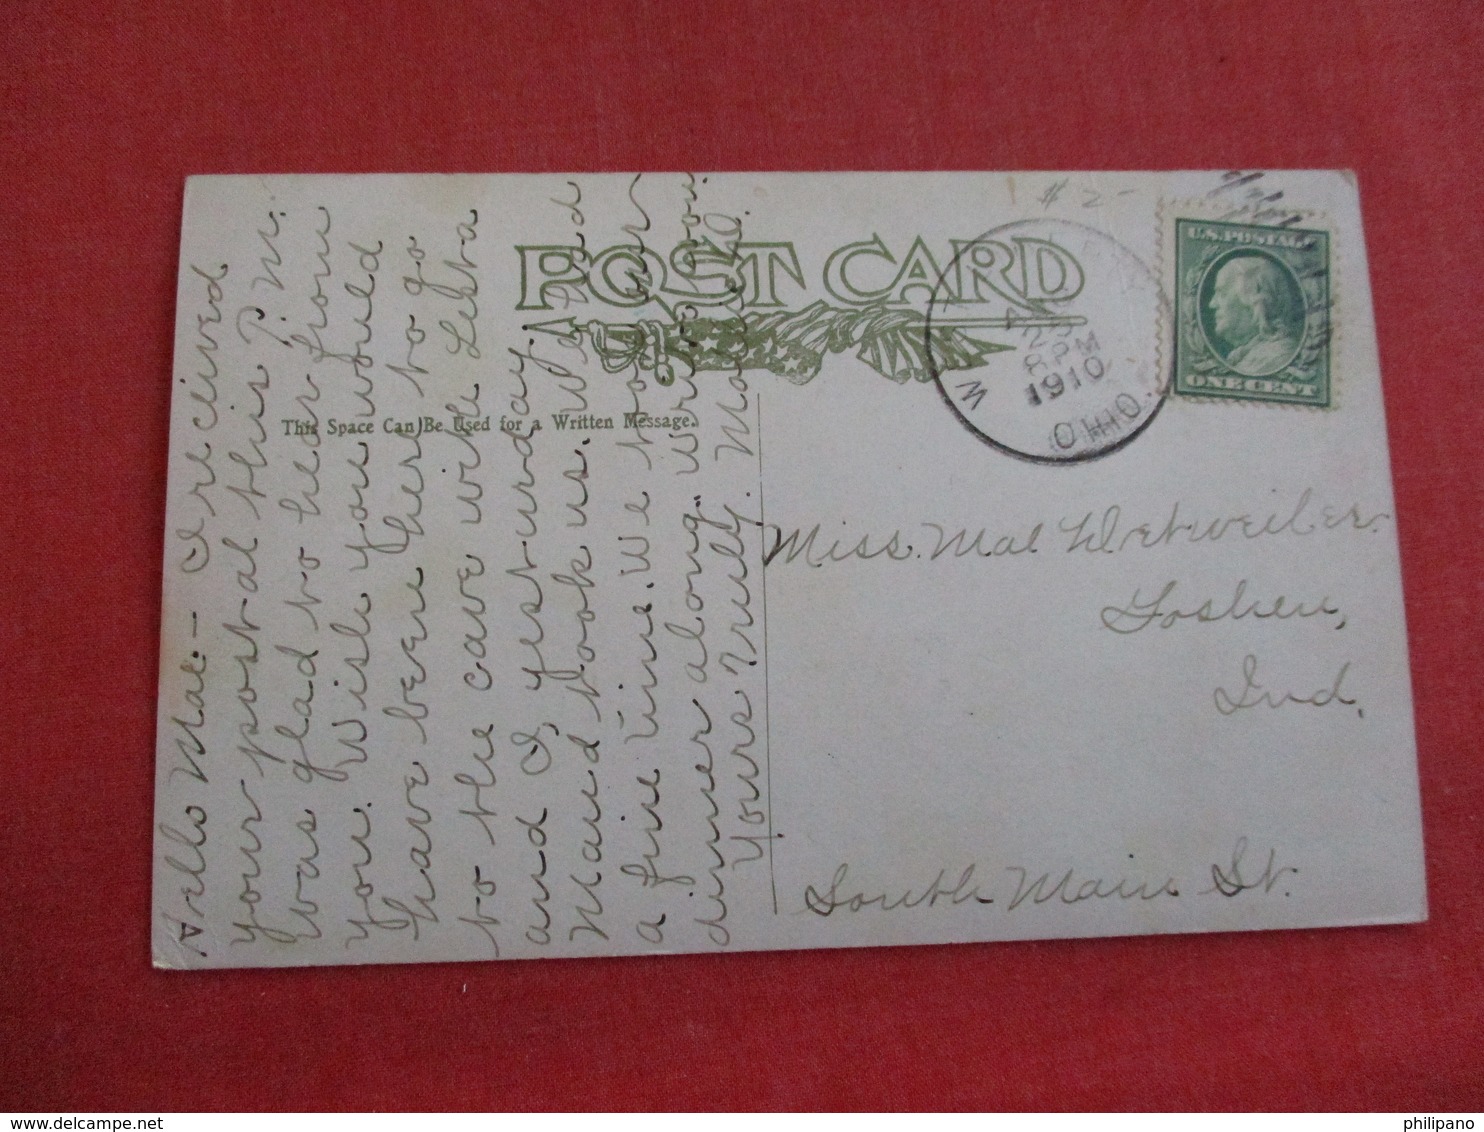 POST CARD
This Space Can Be Used for a Written Message.
Hello Mae:— I received
your postal this P. M.
Was glad to hear from
you. Wish you would
have been here to go
to the cave with Leta
and I, yesterday.
Maud took us. We had
a fine time. We took our
dinner along. Write soon
Yours Truly. Maud
A
$2-
W
OHIO
AUG
2
8 PM
1910
U.S. POSTAGE
ONE CENT
Miss. Mae Detweiler.
Goshen,
Ind,
South Main St.
philipano